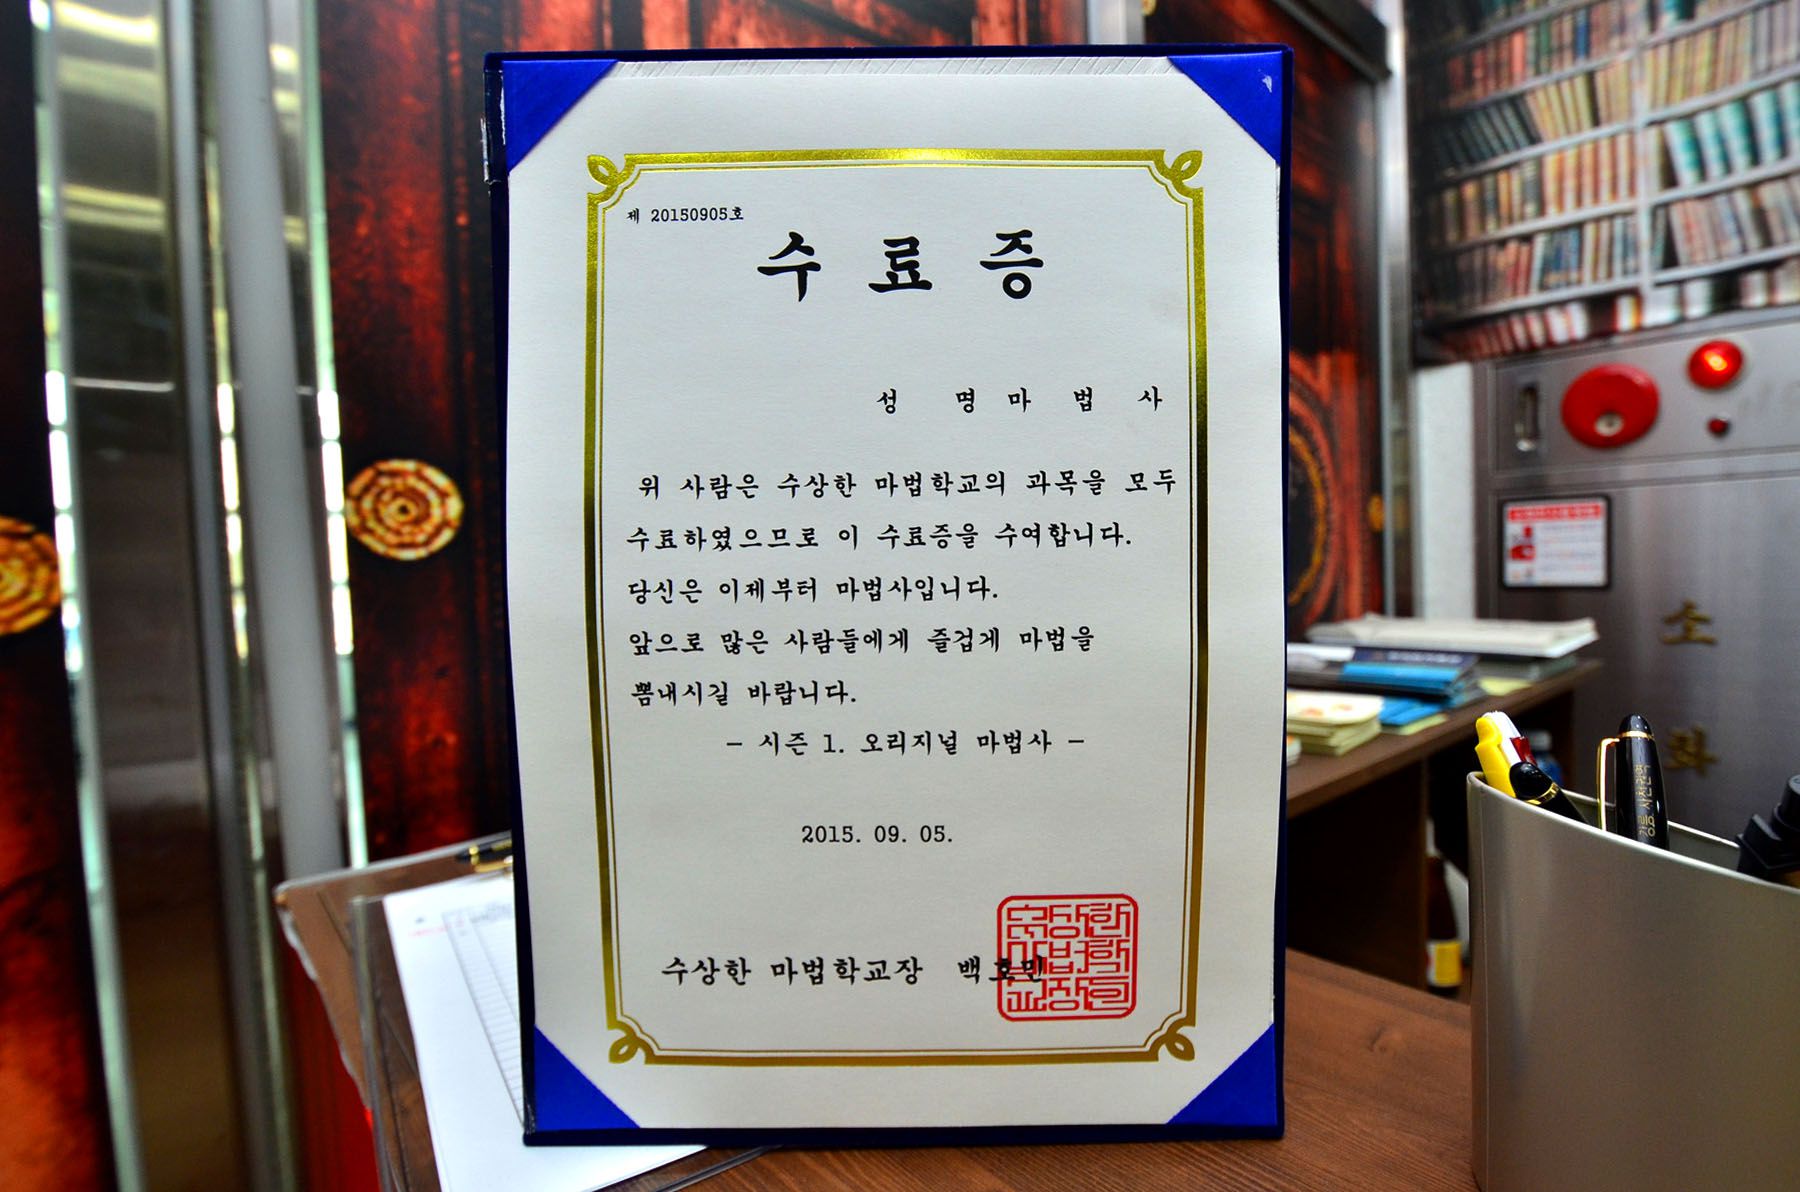 제 20150905호
수 료 증
성 명 마 법 사
위 사람은 수상한 마법학교의 과목을 모두
수료하였으므로 이 수료증을 수여합니다.
당신은 이제부터 마법사입니다.
앞으로 많은 사람들에게 즐겁게 마법을
뽐내시길 바랍니다.
- 시즌 1. 오리지널 마법사 -
2015. 09. 05.
수상한 마법학교장 백호민
수상한
마법학
교장인
소
화